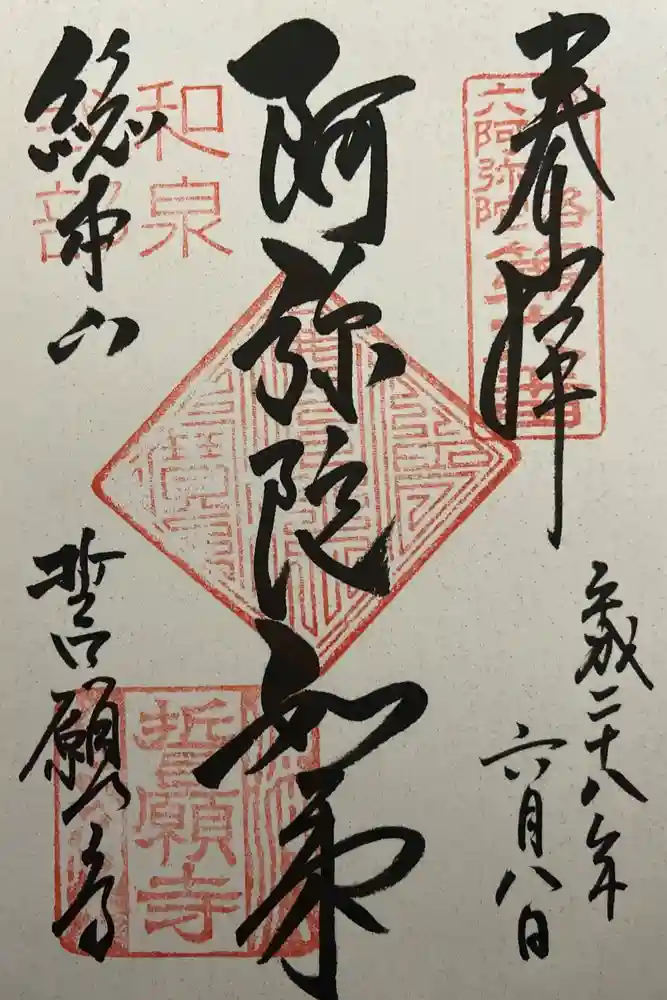 奉拝
六阿弥陀
第六番
平成二十八年
六月八日
阿弥陀如来
和泉
式部
總本山
誓願寺
誓願寺